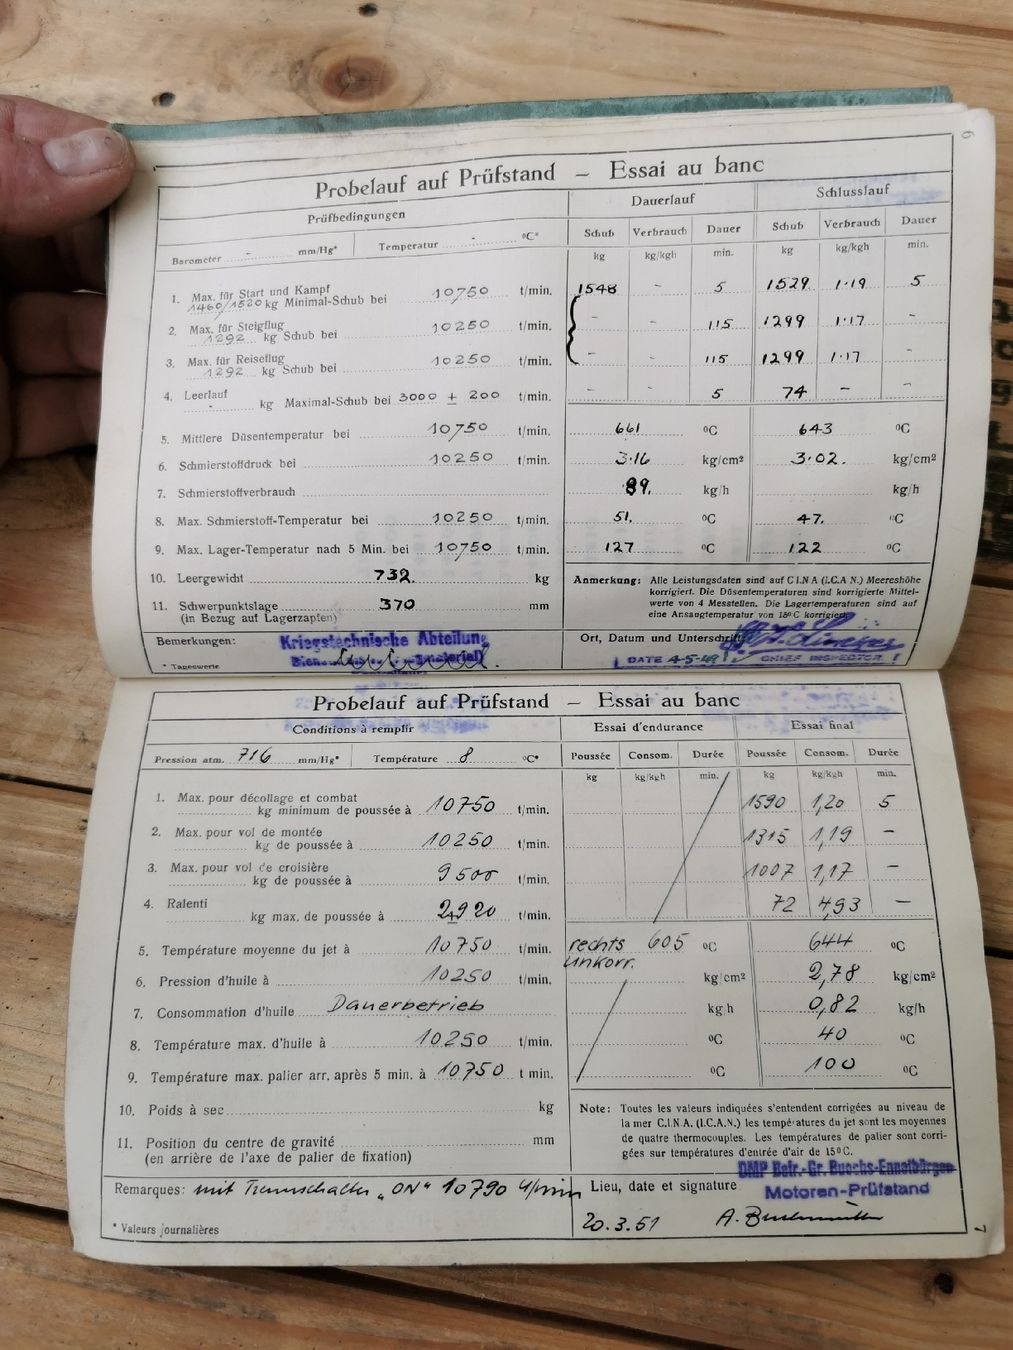 6
Probelauf auf Prüfstand – Essai au banc
Prüfbedingungen Dauerlauf Schlusslauf
Barometer - mm/Hg* Temperatur - ºC* Schub Verbrauch Dauer Schub Verbrauch Dauer
kg kg/kgh min. kg kg/kgh min.
1. Max. für Start und Kampf
1460/1520 kg Minimal-Schub bei 10750 t/min. 1548 - 5 1529 1·19 5
2. Max. für Steigflug
1292 kg Schub bei 10250 t/min. - - 115 1299 1·17 -
3. Max. für Reiseflug
1292 kg Schub bei 10250 t/min. - - 115 1299 1·17 -
4. Leerlauf
- kg Maximal-Schub bei 3000 ± 200 t/min. - - 5 74 - -
5. Mittlere Düsentemperatur bei 10750 t/min. 661 ºC 643 ºC
6. Schmierstoffdruck bei 10250 t/min. 3·16 kg/cm² 3·02. kg/cm²
7. Schmierstoffverbrauch ·89. kg/h kg/h
8. Max. Schmierstoff-Temperatur bei 10250 t/min. 51. ºC 47. ºC
9. Max. Lager-Temperatur nach 5 Min. bei 10750 t/min. 127 ºC 122 ºC
10. Leergewicht 732. kg
11. Schwerpunktslage 370 mm
(in Bezug auf Lagerzapfen)
Anmerkung: Alle Leistungsdaten sind auf C I N A (I.C.A N.) Meereshöhe
korrigiert. Die Düsentemperaturen sind korrigierte Mittel-
werte von 4 Messtellen. Die Lagertemperaturen sind auf
eine Ansaugtemperatur von 15º C korrigiert.
Bemerkungen: Kriegstechnische Abteilung
Ort, Datum und Unterschrift:
* Tageswerte
DATE 4-5-49 CHIEF INSPECTOR
Probelauf auf Prüfstand – Essai au banc
Conditions à remplir Essai d'endurance Essai final
Pression atm. 716 mm/Hg* Température 8 ºC* Poussée Consom. Durée Poussée Consom. Durée
kg kg/kgh min. kg kg/kgh min.
1. Max. pour décollage et combat
kg minimum de poussée à 10750 t/min. 1590 1,20 5
2. Max. pour vol de montée
kg de poussée à 10250 t/min. 1315 1,19 –
3. Max. pour vol de croisière
kg de poussée à 9500 t/min. 1007 1,17 –
4. Ralenti
kg max. de poussée à 2920 t/min. 72 4,93 –
5. Température moyenne du jet à 10750 t/min. rechts 605 ºC 644 ºC
unkorr.
6. Pression d'huile à 10250 t/min. kg/cm² 2,78 kg/cm²
7. Consommation d'huile Dauerbetrieb kg/h 0,82 kg/h
8. Température max. d'huile à 10250 t/min. ºC 40 ºC
9. Température max. palier arr. après 5 min. à 10750 t min. ºC 100 ºC
10. Poids à sec kg
11. Position du centre de gravité mm
(en arrière de l'axe de palier de fixation)
Note: Toutes les valeurs indiquées s'entendent corrigées au niveau de
la mer C.I.N.A. (I.C.A.N.) les températures du jet sont les moyennes
de quatre thermocouples. Les températures de palier sont corri-
gées sur températures d'entrée d'air de 15º C.
DMP Betr.-Gr. Buochs-Ennetbürgen
Motoren-Prüfstand
Remarques: mit Trennschalter „ON“ 10790 U/min Lieu, date et signature:
20.3.51
* Valeurs journalières
7